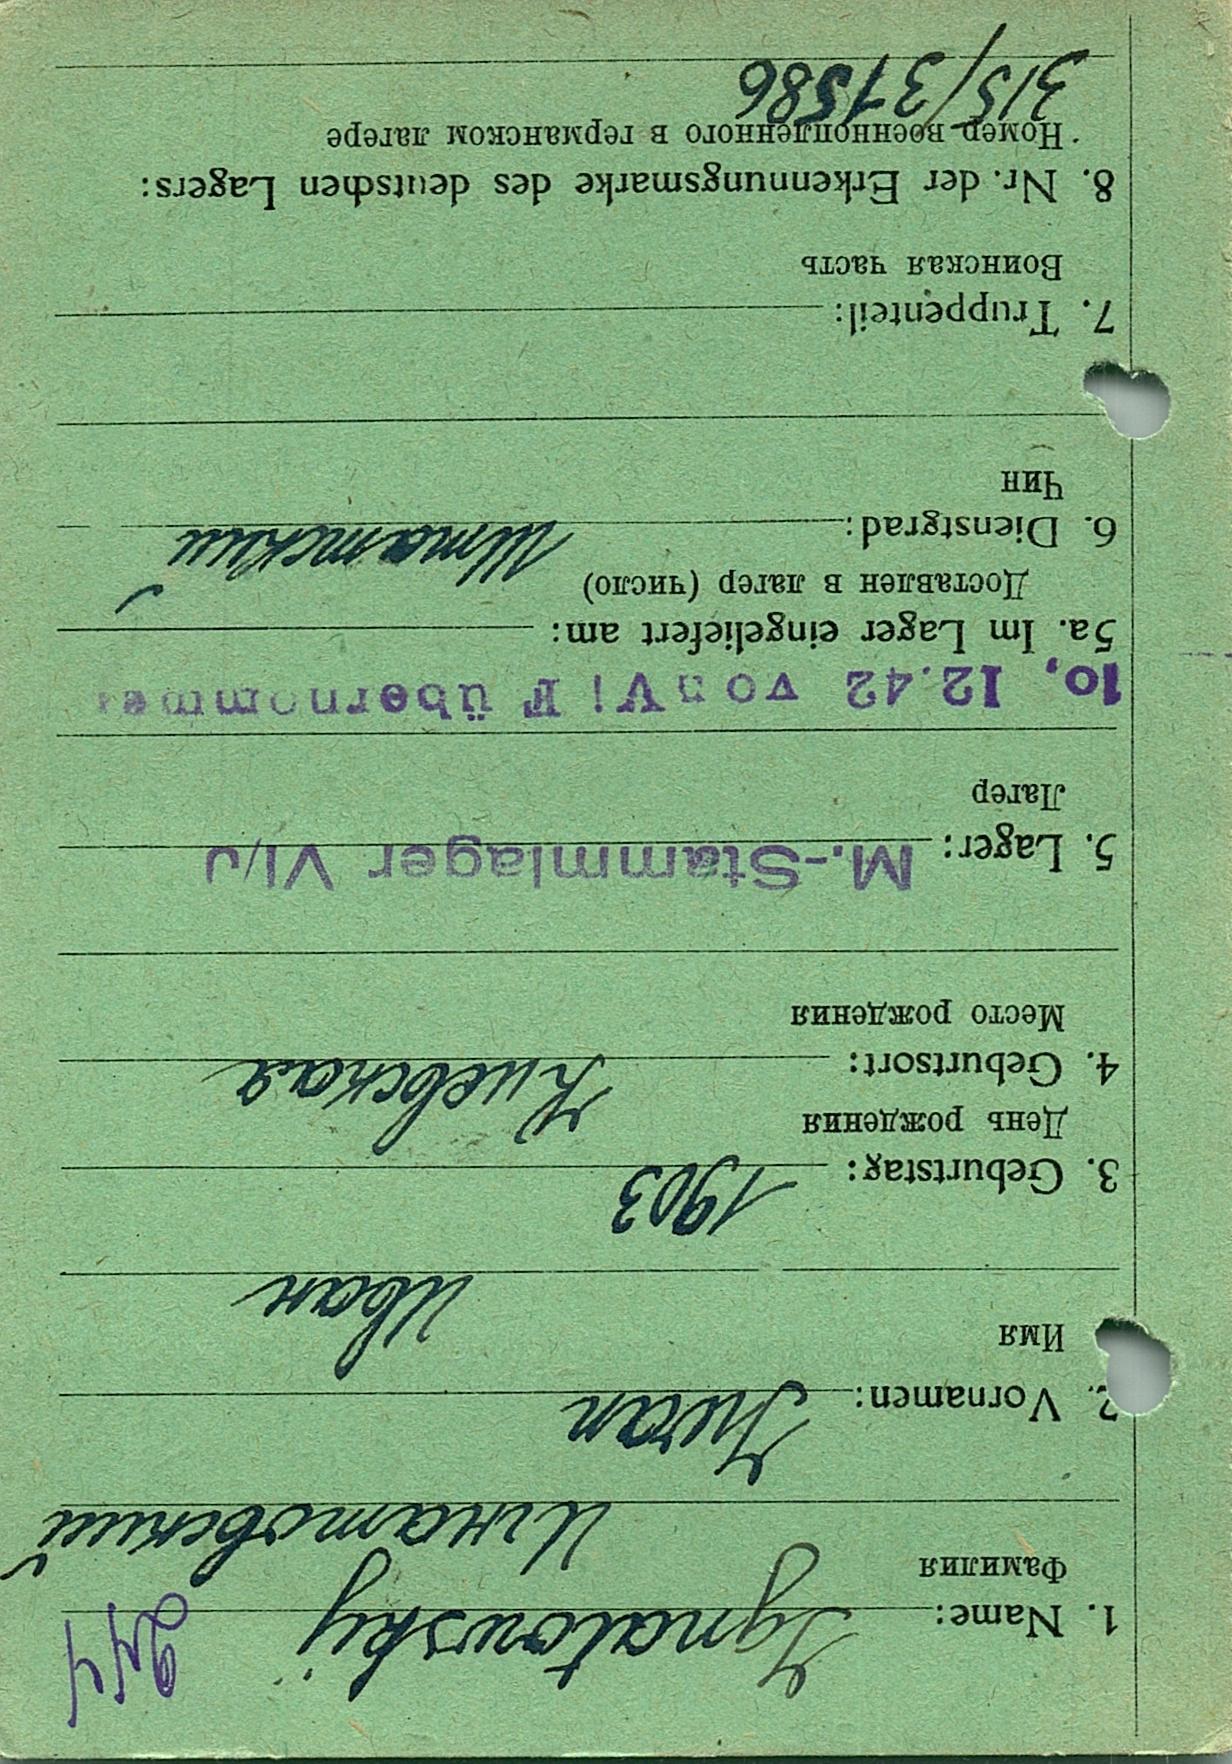 244
1. Name: Ignatowskij
Фамилия
Игнатовский
2. Vornamen: Iwan
Имя
Иван
3. Geburtstag: 1903
День рождения
4. Geburtsort: Киевская
Место рождения
5. Lager: M.-Stammlager VI/J
Лагер
10. 12.42 von VI F übernommen
5a. Im Lager eingeliefert am:
Доставлен в лагер (число)
6. Dienstgrad: Штатский
Чин
7. Truppenteil:
Воинская часть
8. Nr. der Erkennungsmarke des deutschen Lagers:
Номер военнопленного в германском лагере
315/31586